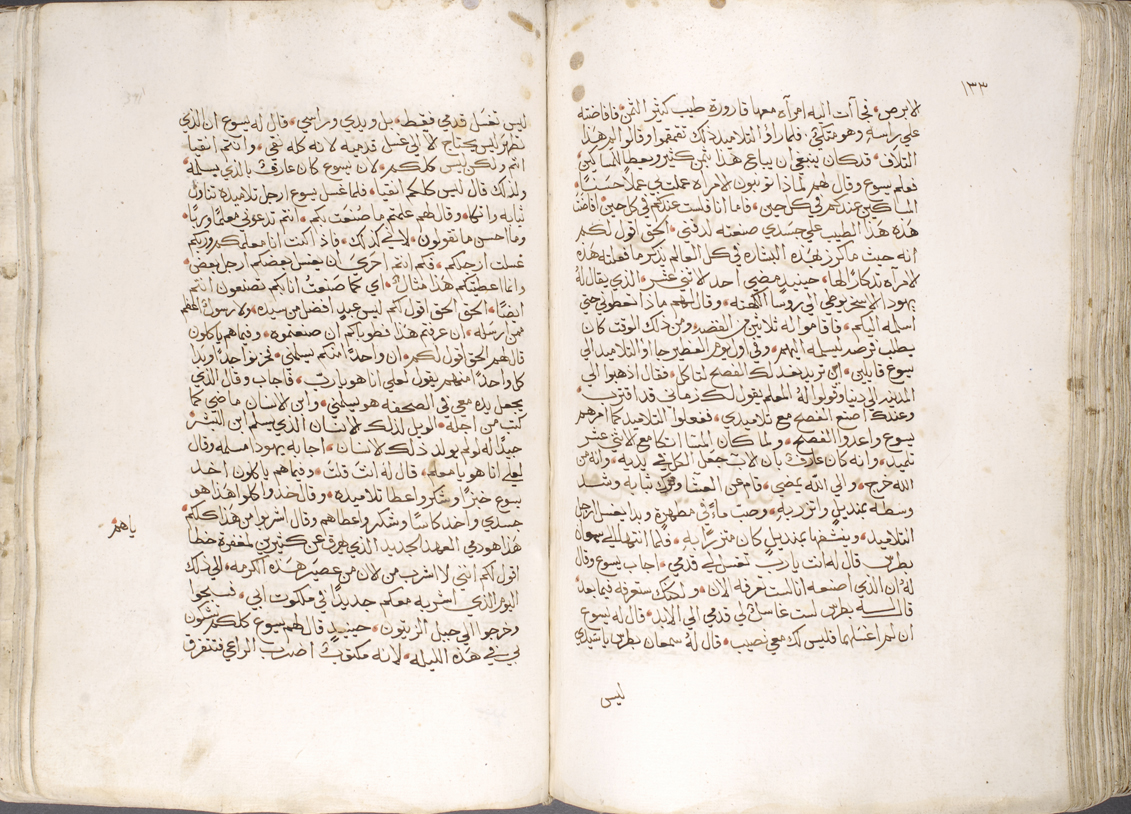 ١٣٣
الابرص، فجات اليه امرآه معها قارورة طيب كثير الثمن، فافاضته
علي راسه وهو متكي، فلما راوا التلاميذ ذلك تقمقموا وقالوا لم هذا
التلاف، قد كان ينبغي ان يباع هذا بثمن كثير ويعطا المساكين،
فعلم يسوع وقال لهم لماذا توذون الامراه عملت بي عملاً حسناً،
المساكين عندكم في كل حين، فاما انا فلست عندكم في كل حين، افاضت
هذه هذا الطيب علي جسدي صنعته لدفني، الحق اقول لكم
انه حيث ما كرز بهذه البشاره في كل العالم يذكر ما فعلته هذه
الامراه تذكاراً لها، حينيذٍ مضي احد الاثني عشر، الذي يقال له
يهودا الاسخريوطي الي روسا الكهنه، وقال لهم ماذا تعطوني حتي
اسلمه اليكم، فاقاموا له ثلاثين من الفضه، ومن ذلك الوقت كان
يطلب فرصه ليسلمه اليهم، وفي اول يوم الفطير جاوا التلاميذ الي
يسوع قايلين، اين تريد نعد لك الفصح لتاكل، فقال اذهبوا الي
المدينه الي فلان وقولوا له المعلم يقول لك زماني قد اقترب،
وعندك اصنع الفصح مع تلاميدي، ففعلوا التلاميد كما امرهم
يسوع واعدوا الفصح، ولما كان المسا اتكا مع الاثني عشر
تلميد، وانه كان عارف بان الاب جعل الكل في يديه، وانه من
الله خرج، والي الله يمضي، قام عن العشا وترك ثيابه وشد
وسطه بمنديل واتزر به، وصب مآءً في مطهرة وبدا يغسل ارجل
التلاميد، وينشفها بمنديل كان متزراً به، فلما انتها الي سمعان
بطرس قال له انت يارب تغسل لي قدمي، اجاب يسوع وقال
له ان الذي اصنعه انا لست تعرفه الان، ولكنك ستعرفه فيما بعد
قال له بطرس لست غاسلاً لي قدمي الي الابد، قال له يسوع
ان لم اغسلهما فليس لك معي نصيب، قال له سمعان بطرس يا سيدي
ليس
ليس تغسل قدمي فقط، بل ويدي وراسي، قال له يسوع ان الذي
تطهر ليس يحتاج الا الي غسل قدميه لانه كله نقي، وانتم انقيا
انتم ولكن ليس كلكم، لان يسوع كان عارف بالذي يسلمه
ولذلك قال ليس كلكم انقيا، فلما غسل يسوع ارجل تلاميذه تناول
ثيابه واتكا، وقال لهم علمتم ما صنعت بكم، انتم تدعوني معلماً ورباً،
وما احسن ما تقولون، لاني كذلك، فاذا كنت انا معلمكم وربكم
غسلت ارجلكم، فكم انتم احرى ان يغسل بعضكم ارجل بعض،
وانما اعطيتكم هذا مثالاً، اي كما صنعت انا بكم تصنعون انتم
ايضاً، الحق الحق اقول لكم ليس عبد افضل من سيده، ولا رسول اعظم
ممن ارسله، ان عرفتم هذا فطوباكم ان صنعتموه، وفيما هم ياكلون
قال لهم الحق اقول لكم، ان واحداً منكم يسلمني، فحزنوا جداً وبدا
كل واحداً منهم يقول لعلي انا هو يارب، فاجاب وقال الذي
يجعل يده معي في الصحفه هو يسلمني، وابن الانسان ماضي كما
كتب من اجله، الويل لذلك الانسان الذي يسلم ابن البشر
جيداً له لو لم يولد ذلك الانسان، اجابه يهودا مسلمه وقال
لعلي انا هو يا معلم، قال له انت قلت، وفيما هم ياكلون اخد
يسوع خبزاً وشكر واعطا تلاميده، وقال خدوا كلوا هذا هو
جسدي واخد كاساً وشكر واعطاهم وقال اشربوا من هذا كلكم
هذا هو دمي العهد الجديد الذي يهرق عن كثيرين لمغفرة خطا
ياهم
اقول لكم انني لا اشرب من الان من عصير هذه الكرمه، الي ذلك
اليوم الذي اشربه معكم جديداً في ملكوت ابي، فسبحوا
وخرجوا الي جبل الزيتون، حينيذٍ قال لهم يسوع كلكم تشكون
بي في هذه الليله، لانه مكتوب اضرب الراعي فتتفرق